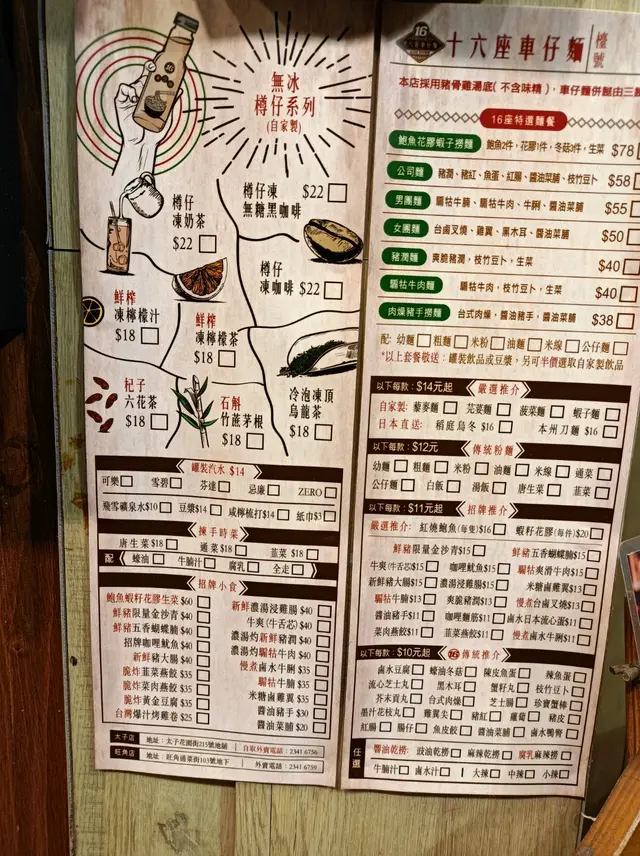 無冰
樽仔系列
(自家製)
樽仔
凍奶茶
$22
樽仔凍
無糖黑咖啡
$22
樽仔
凍咖啡 $22
鮮榨
凍檸檬汁
$18
鮮榨
凍檸檬茶
$18
杞子
六花茶
$18
石斛
竹蔗茅根
$18
冷泡凍頂
烏龍茶
$18
罐裝汽水 $14
可樂 雪碧 芬達 忌廉 ZERO
飛雪礦泉水$10 豆漿$14 咸檸梳打$14 紙巾$3
揀手時菜
唐生菜$18 通菜$18 韮菜 $18
配 蠔油 牛腩汁 腐乳 全走
招牌小食
鮑魚蝦籽花膠生菜 $60
鮮豬限量金沙青 $40
鮮豬五香蝴蝶腩 $40
招牌咖哩魷魚 $40
新鮮豬大腸 $40
脆炸韮菜燕餃 $35
脆炸菜肉燕餃 $35
脆炸黃金豆腐 $35
台灣爆汁烤雞卷 $25
新鮮濃湯浸雞腸 $40
牛爽(牛舌芯) $40
濃湯灼新鮮豬潤 $40
濃湯灼騸牯牛肉 $40
慢煮鹵水牛脷 $35
騸牯牛腩 $35
米糖鹵雞翼 $35
醬油豬手 $30
醬油菜脯 $20
太子店 地址：太子花園街215號地舖 自取外賣電話：2341 6756
旺角店 地址：旺角通菜街103號地下 外賣電話：2341 6759
16
十六座車仔麵
檯號
本店採用豬骨雞湯底( 不含味精 )，車仔麵併餸由三
16座特選麵餐
鮑魚花膠蝦子撈麵 鮑魚2件，花膠1件，冬菇3件，生菜 $78
公司麵 豬潤、豬紅、魚蛋、紅腸、醬油菜脯、枝竹豆卜 $58
男團麵 騸牯牛腩、騸牯牛肉、牛脷、醬油菜脯 $55
女團麵 台鹵叉燒、雞翼、黑木耳、醬油菜脯 $50
豬潤麵 爽脆豬潤，枝竹豆卜，生菜 $40
騸牯牛肉麵 騸牯牛肉，枝竹豆卜，生菜 $40
肉燥豬手撈麵 台式肉燥，醬油豬手，醬油菜脯 $38
配: 幼麵 粗麵 米粉 油麵 米線 公仔麵
*以上套餐敬送：罐裝飲品或豆漿，另可半價選取自家製飲品
以下每款：$14元起 嚴選推介
自家製: 藜麥麵 芫荽麵 菠菜麵 蝦子麵
日本直送: 稻庭烏冬 $16 本州刀麵 $16
以下每款：$12元 傳統粉麵
幼麵 粗麵 米粉 油麵 米線 通菜
公仔麵 白飯 湯飯 唐生菜 韮菜
以下每款：$11元起 招牌推介
嚴選推介: 紅燒鮑魚(每隻)$16 蝦籽花膠(每件)$20
鮮豬限量金沙青$15 鮮豬五香蝴蝶腩$15
牛爽(牛舌芯)$15 咖哩魷魚$15 騸牯爽滑牛肉$15
新鮮豬大腸$15 濃湯浸雞腸$15 米糖鹵雞翼$13
騸牯牛腩$13 爽脆豬潤$13 慢煮台鹵叉燒$13
醬油豬手$11 咖哩麵筋$11 鹵水日本流心蛋$11
菜肉燕餃$11 韮菜燕餃$11 慢煮鹵水牛脷$11
以下每款：$10元起 16 傳統推介
鹵水豆腐 蠔油冬菇 陳皮魚蛋 辣魚蛋
流心芝士丸 黑木耳 蟹籽丸 枝竹豆卜
芥末貢丸 台式肉燥 芝士腸 珍寶蟹棒
墨汁花枝丸 雞翼尖 豬紅 蘿蔔 豬皮
紅腸 腸仔 魚皮餃 醬油菜脯 鹵水鴨腎
任選
醬油乾撈: 豉油乾撈 麻辣乾撈 腐乳麻辣撈
牛腩汁 鹵水汁 | 大辣 中辣 小辣